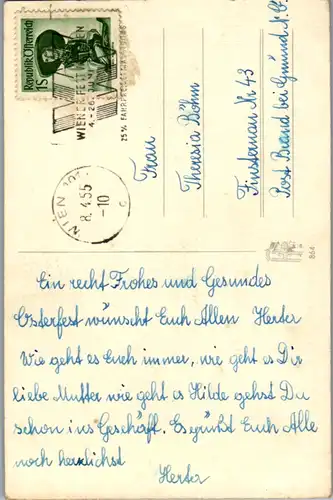 Republik Österreich
1S
WIENER FESTWOCHEN
4. - 26. JUNI
25% FAHRPREISERMÄSSIGUNG
WIEN
8.4.55
-10
c
Frau
Theresia Böhm
Finsternau Nr 43
Post Brand bei Gmünd N.Ö.
864
Ein recht Frohes und Gesundes
Osterfest wünscht Euch Allen Herta
Wie geht es Euch immer, wie geht es Dir
liebe Mutter wie geht es Hilde gehst Du
schon ins Geschäft. Es grüßt Euch Alle
noch herzlichst
Herta